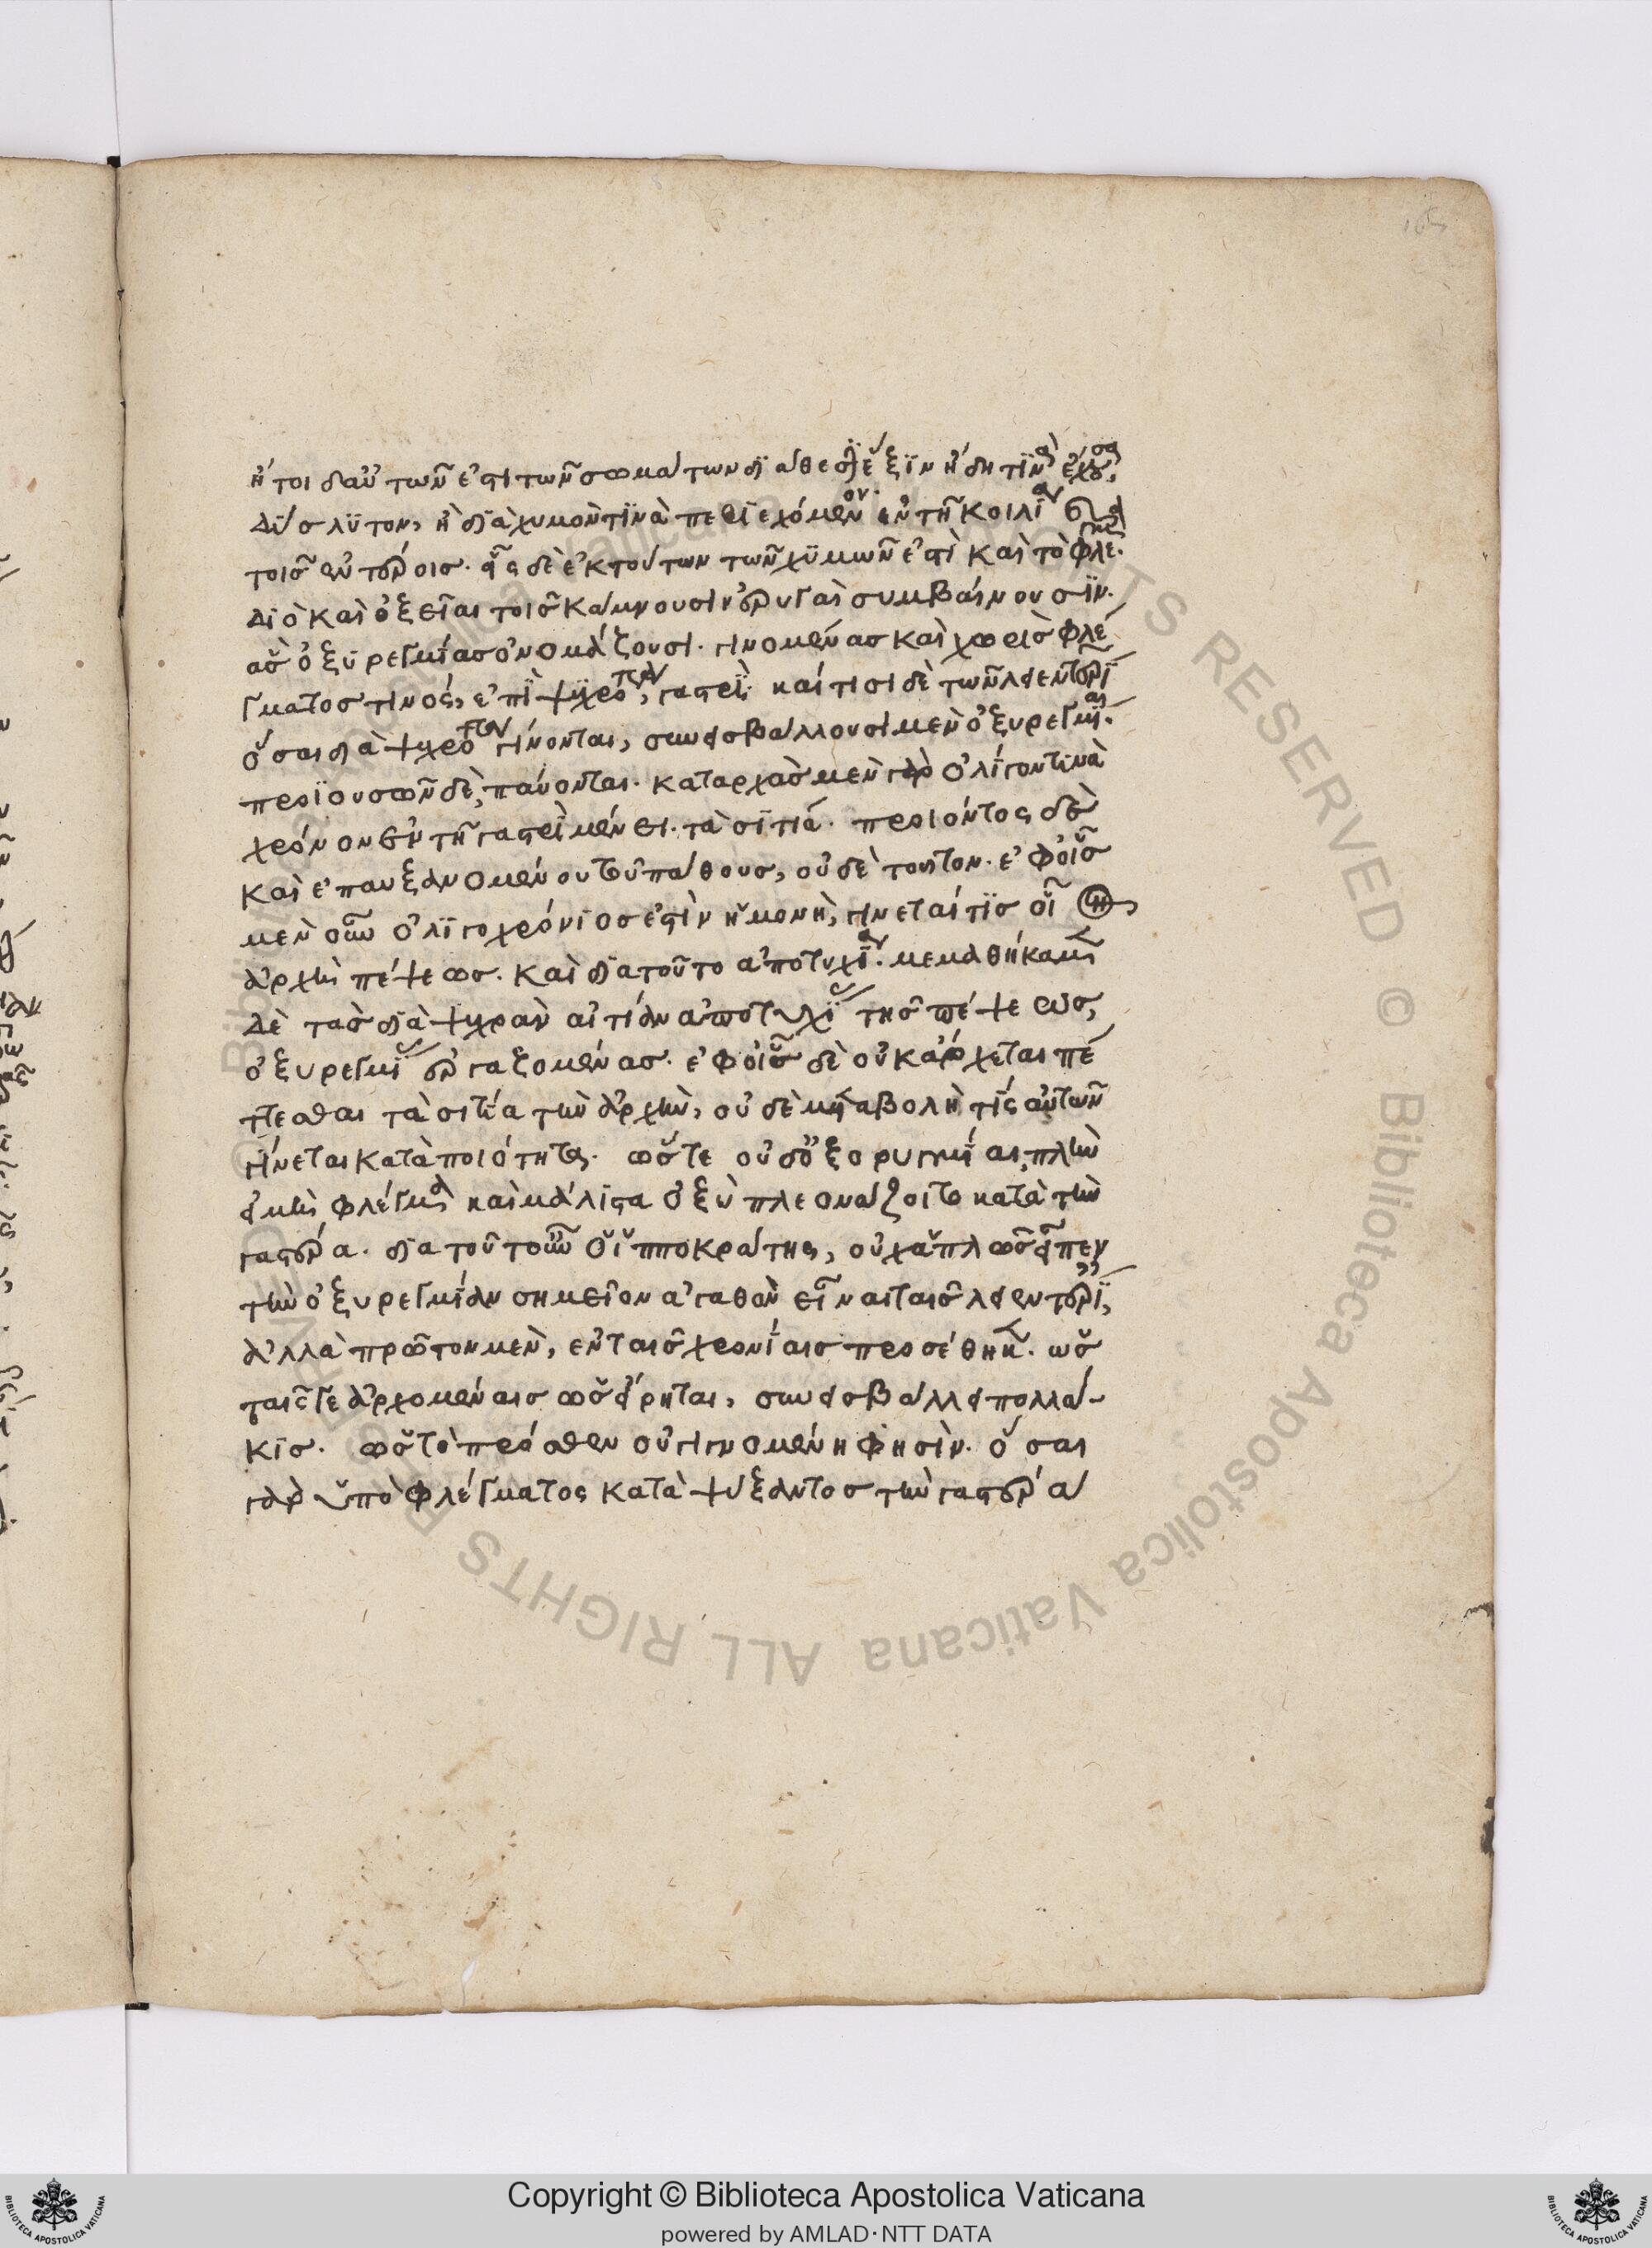 ἤτοι δι' αὐτῶν ἐστὶ τῶν σωμάτων διάθεσιν ἕξιν ἤδη τινὰ ἔχουσαν
δύσλυτον, ἢ διὰ χυμόν τινα περιεχόμενον ἐν τῇ κοιλίαν
τοῖς ἐντέροις. εἷς δὲ ἐκ τούτων τῶν χυμῶν ἐστὶ καὶ τὸ φλέγμα.
διὸ καὶ ὀξεῖαι τοῖς κάμνουσιν ἐρυγαὶ συμβαίνουσιν.
ἃς ὀξυρεγμίας ὀνομάζουσι. γινομένας καὶ χωρὶς φλέ
γματος τινός, ἐπὶ ψυχροτέραν γαστρί. καί τισι δὲ τῶν λειεντερι
ὅσαι διὰ ψυχρότητα γίνονται, συνεισβάλλουσι μὲν ὀξυρεγμίαι.
προϊουσῶν δὲ, παύονται. καταρχὰς μὲν γὰρ ὀλίγον τινὰ
χρόνον ἐν τῇ γαστρὶ μένει τὰ σιτία. προϊόντος δὲ
καὶ ἐπαυξανομένου τοῦ πάθους, οὐδὲ τοῦτον. ἐφ' οἷς
μὲν οὖν ὀλιγοχρόνιος ἐστὶν ἡ μονὴ, γίνεταί τις οἷον
ἀρχὴ πέψεως. καὶ διατοῦτο ἀποτυχίαν. μεμαθήκαμεν
δὲ τὰς διὰ ψυχρὰν αἰτίαν ἀποτυχίας τῆς πέψεως,
ὀξυρεγμίας ἐργαζομένας. ἐφ' οἷς δὲ οὐκ ἄρχεται πέ
ττεσθαι τὰ σιτία τὴν ἀρχὴν, οὐδὲ μεταβολή τις αὐτῶν
γίνεται κατὰ ποιότητα. ὥστε οὐδ' ὀξορυγμίαι, πλὴν
εἰ μὴ φλέγμα καὶ μάλιστα ὀξὺ πλεονάζοιτο κατὰ τὴν
γαστέρα. διατοῦτ' οὖν ὁ ἱπποκράτης, οὐχ ἁπλῶς εἶπεν
τὴν ὀξυρεγμίαν σημεῖον ἀγαθὸν εἶναι ταῖς λειεντερί,
ἀλλὰ πρῶτον μὲν, ἐν ταῖς χρονίαις προσέθηκεν. ὡς
ταῖς γε ἀρχομέναις ὡς εἴρηται, συνεισβάλλει πολλά-
κις. ὥς τὸ πρόσθεν οὐ γινομένη φησίν. ὅσαι
γὰρ ὑπὸ φλέγματος καταψύξαντος τὴν γαστέρα